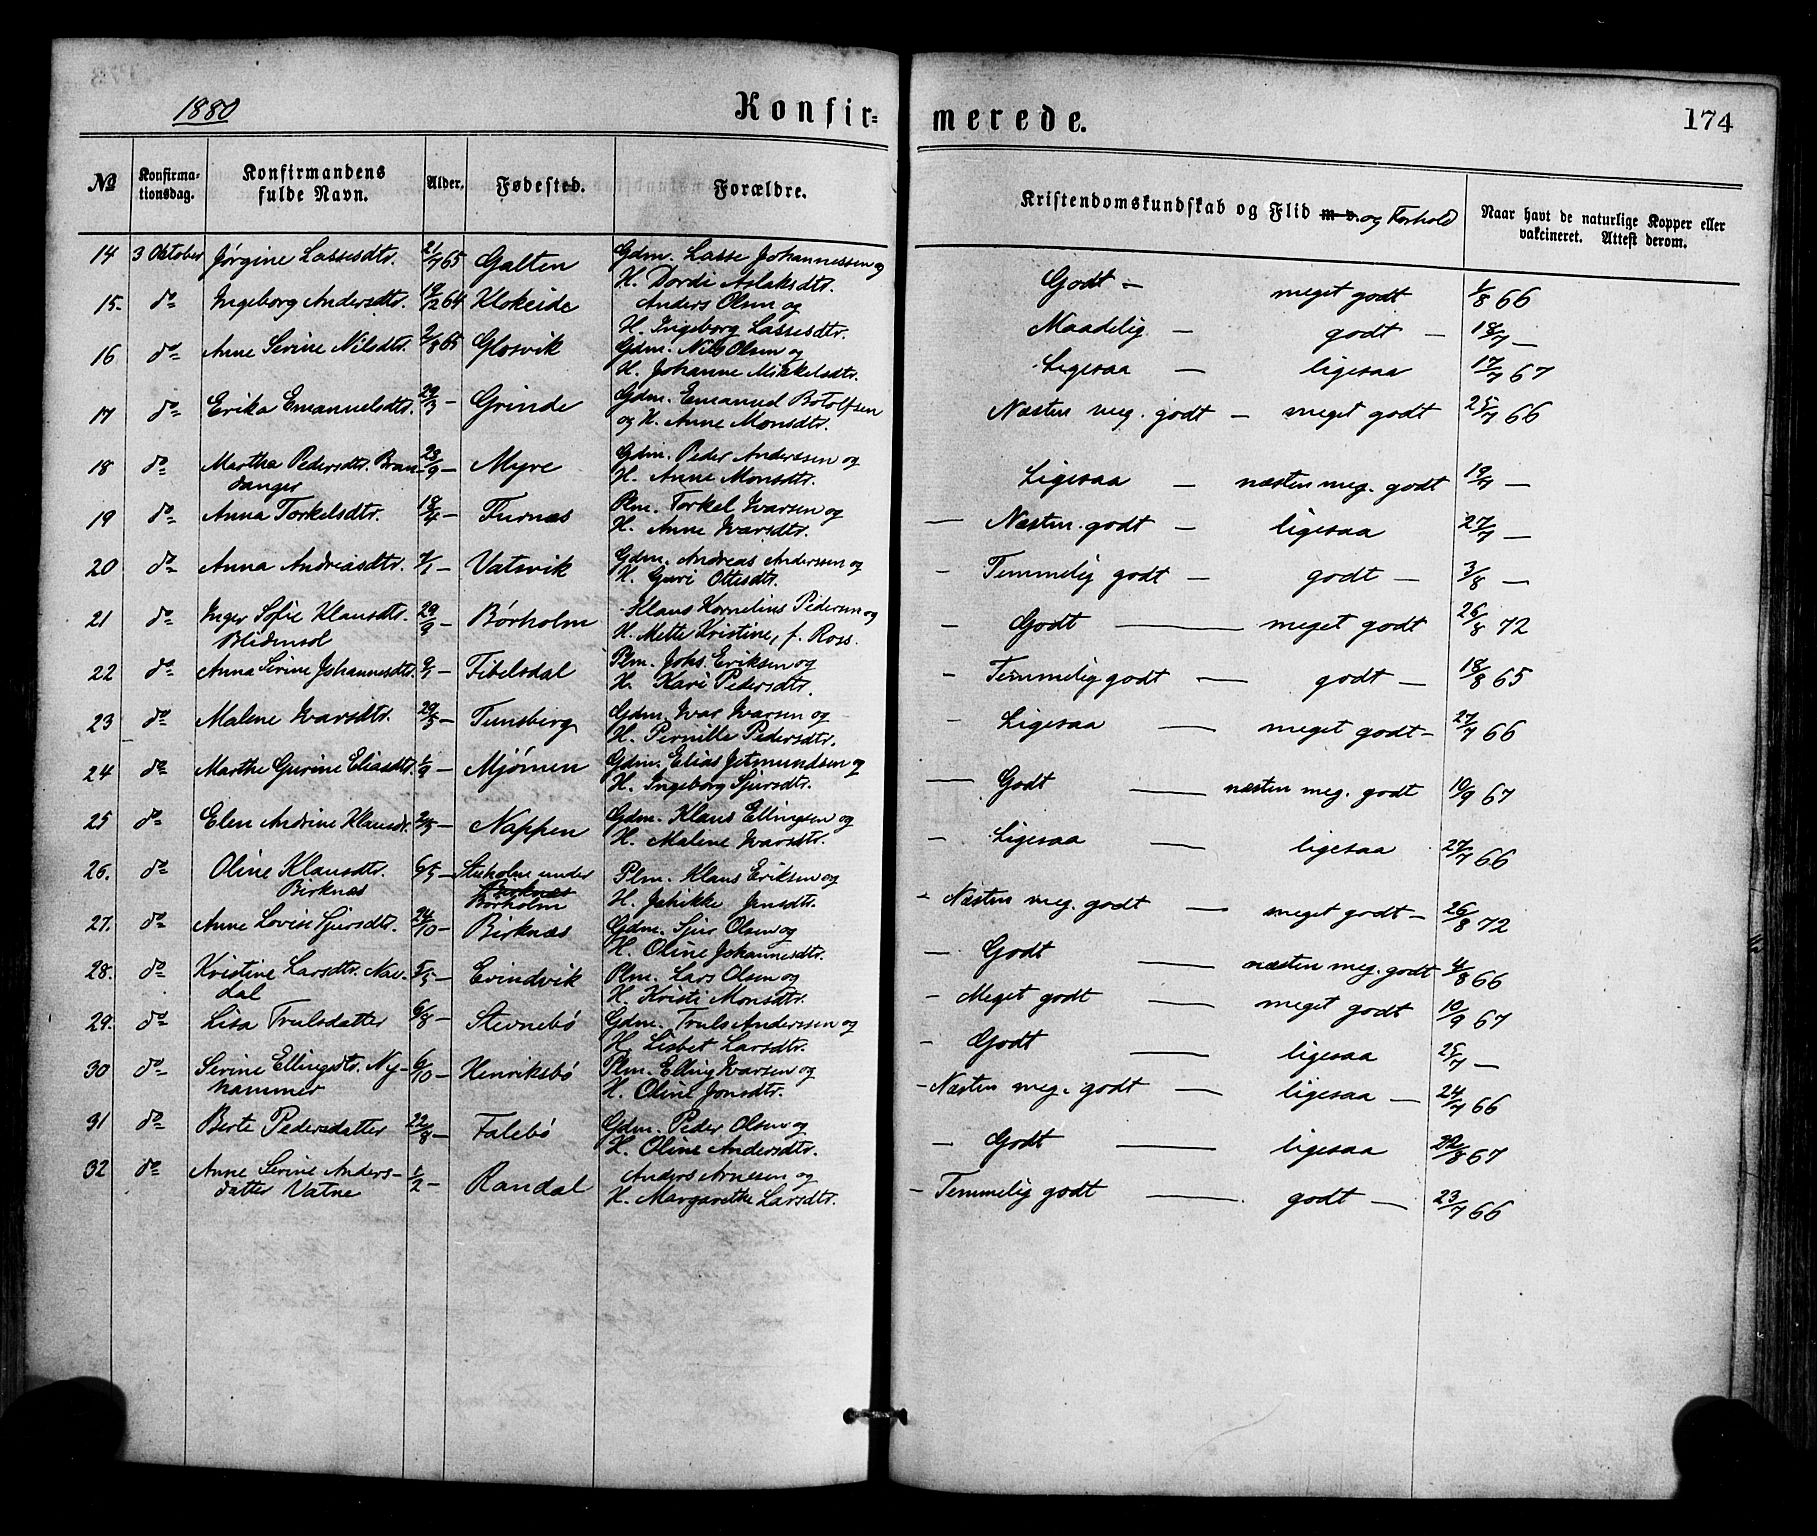 1880
Konfir-
merede.
174
No
Konfirma-
tionsdag.
Konfirmandens
fulde Navn.
Alder.
Fødested.
Forældre.
Kristendomskundskab og Flid m. v. og Forhold
Naar havt de naturlige Kopper eller
vakcineret. Attest derom.
14 3 Oktober Jørgine Lassesdtr. 21/7 65 Galten Gdm. Lasse Johannessen og
H. Dordi Aslaksdtr. Godt - meget godt 1/8 66
15. do Ingeborg Andersdtr. 19/12 64 Klokeide Anders Olsen og
H. Ingeborg Lassesdtr. Maadelig - godt - 18/7 -
16 do Anne Serine Nilsdtr. 2/8 65 Glosvik Gdm. Nils Olsen og
H. Johanne Mikkelsdtr. Ligesaa - ligesaa 17/7 67
17 do Erika Emanuelsdtr. 29/3 - Grinde Gdm. Emanuel Botolfsen
og H. Anne Monsdtr. Næsten meg. godt - meget godt 25/7 66
18 do Martha Pedersdtr. Bran- 23/9 - Myre Gdm. Peder Anderssen og
danger H. Anne Monsdtr. Ligesaa - næsten meg. godt 19/7 -
19 do Anna Torkelsdtr. 18/4 - Furnæs Plm. Torkel Ivarsen og
H. Anne Ivarsdtr. - Næsten godt - ligesaa 27/7 -
20 do Anna Andreasdtr. 7/1 - Vatsvik Gdm. Andreas Anderssen og
H. Guri Ottesdtr. - Temmelig godt - godt - 3/8 -
21 do Inger Sofie Klausdtr. 29/9 - Børholm Klaus Kornelius Pedersen og
Blidensol H. Mette Kristine, f. Ross. - Godt - meget godt 26/8 72
22 do Anna Serine Johannesdtr. 9/1 - Fibelsdal Plm. Johs. Eriksen og
H. Kari Pedersdtr. - Temmelig godt - godt - 18/8 65
23 do Malene Ivarsdtr. 29/3 - Tunsberg Gdm. Ivar Ivarsen og
H. Pernille Pedersdtr. - Ligesaa - meget godt - 27/7 66
24 do Marthe Gurine Eliasdtr. 1/9 - Mjømen Gdm. Elias Jetmundsen og
H. Ingeborg Sjursdtr. - Godt - næsten meg. godt 10/9 67
25 do Elen Andrine Klausdtr. 2/5 - Nappen Gdm. Klaus Ellingsen og
H. Malene Ivarsdtr. - Ligesaa - ligesaa 27/7 66
26. do Oline Klausdtr. 6/5 - under Plm. Klaus Eriksen og
Birknæs Birknæs
Børholm H. Jensdtr. - Næsten meg. godt - meget godt - 26/8 72
27. do Anne Lovise Sjursdtr. 24/10 - Birknæs Gdm. Sjur Olsen og
H. Oline Johannesdtr. - Godt - næsten meg. godt 4/8 66
28. do Kristine Larsdtr. Nav- 5/5 - Evindvik Plm. Lars Olsen og
dal H. Kristi Monsdtr. - Meget godt - meget godt 10/9 67
29. do Lisa Trulsdatter 6/8 - Stevnebø Gdm. Truls Anderssen og
H. Lisbet Larsdtr. - Godt - ligesaa 25/7 -
30 do Serine Ellingsdtr. Ny- 6/10 - Henriksbø Plm. Elling Ivarsen og
hammer H. Oline Jonsdtr. - Næsten meg. godt - ligesaa - 24/7 66
31 do Berte Pedersdatter 22/8 - Falebø Gdm. Peder Olsen og
H. Oline Andersdtr. - Godt - ligesaa 22/8 67
32 do Anne Serine Anders- 1/2 - Randal Anders Arnesen og
datter Vatne H. Margarethe Larsdtr. - Temmelig godt - godt - 23/7 66